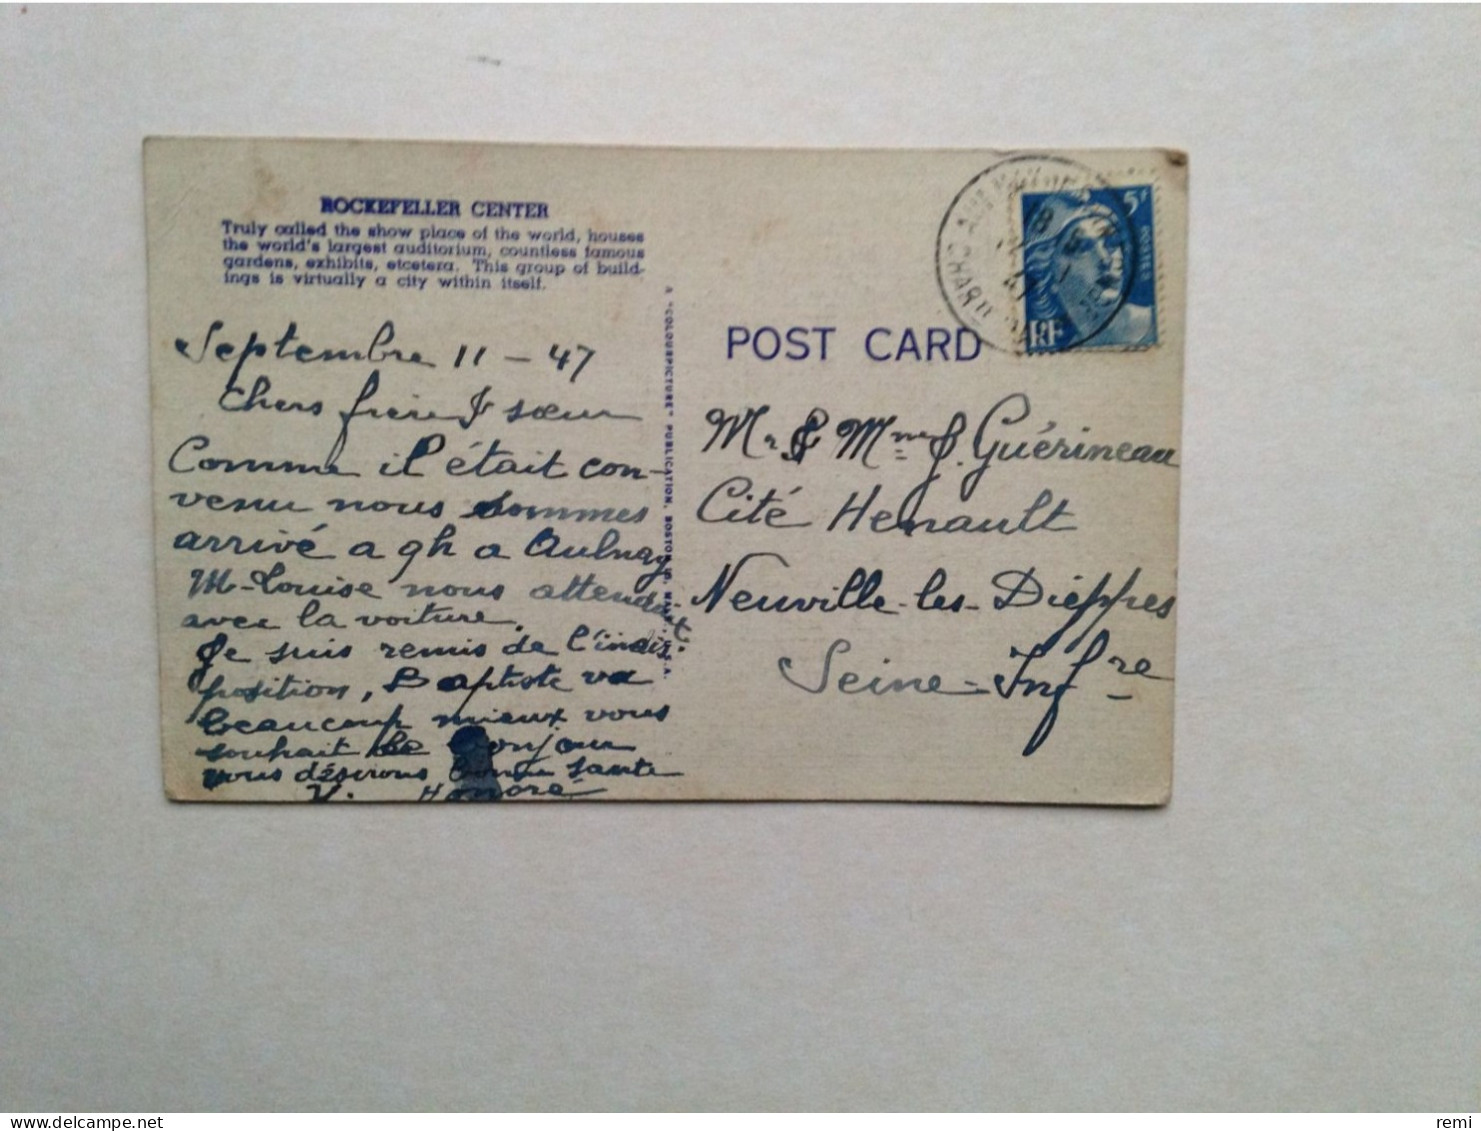 ROCKEFELLER CENTER
Truly called the show place of the world, houses
the world's largest auditorium, countless famous
gardens, exhibits, etcetera. This group of build-
ings is virtually a city within itself.
Septembre 11 - 47
Chers frère & sœur
Comme il était con-
venu nous sommes
arrivé a 9h a Aulnay
M-Louise nous attendait
avec la voiture.
Je suis remis de l'indis
position, Baptiste va
beaucoup mieux vous
souhait le Bonjour
vous désirons bonne santé
V. Honoré
A "COLOURPICTURE" PUBLICATION, BOSTON U.S.A.
POST CARD
5F
POSTES
RF
18
Mr & Mme J. Guérineau
Cité Henault
Neuville-les-Dieppres
Seine-Infre
delcampe.net
remi